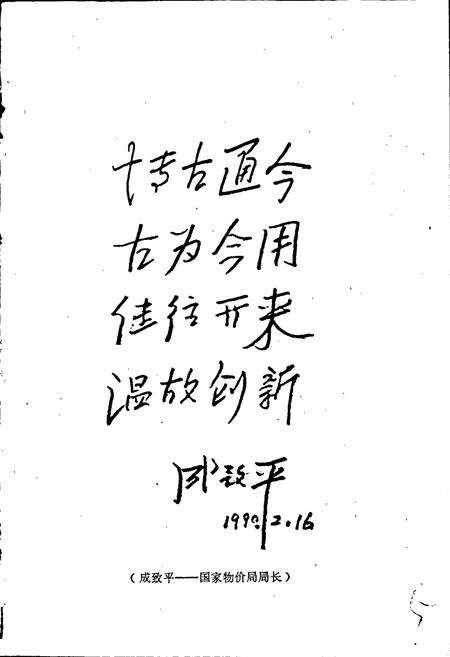 博古通今
古为今用
继往开来
温故创新
成致平
1990.2.16
(成致平——国家物价局局长)